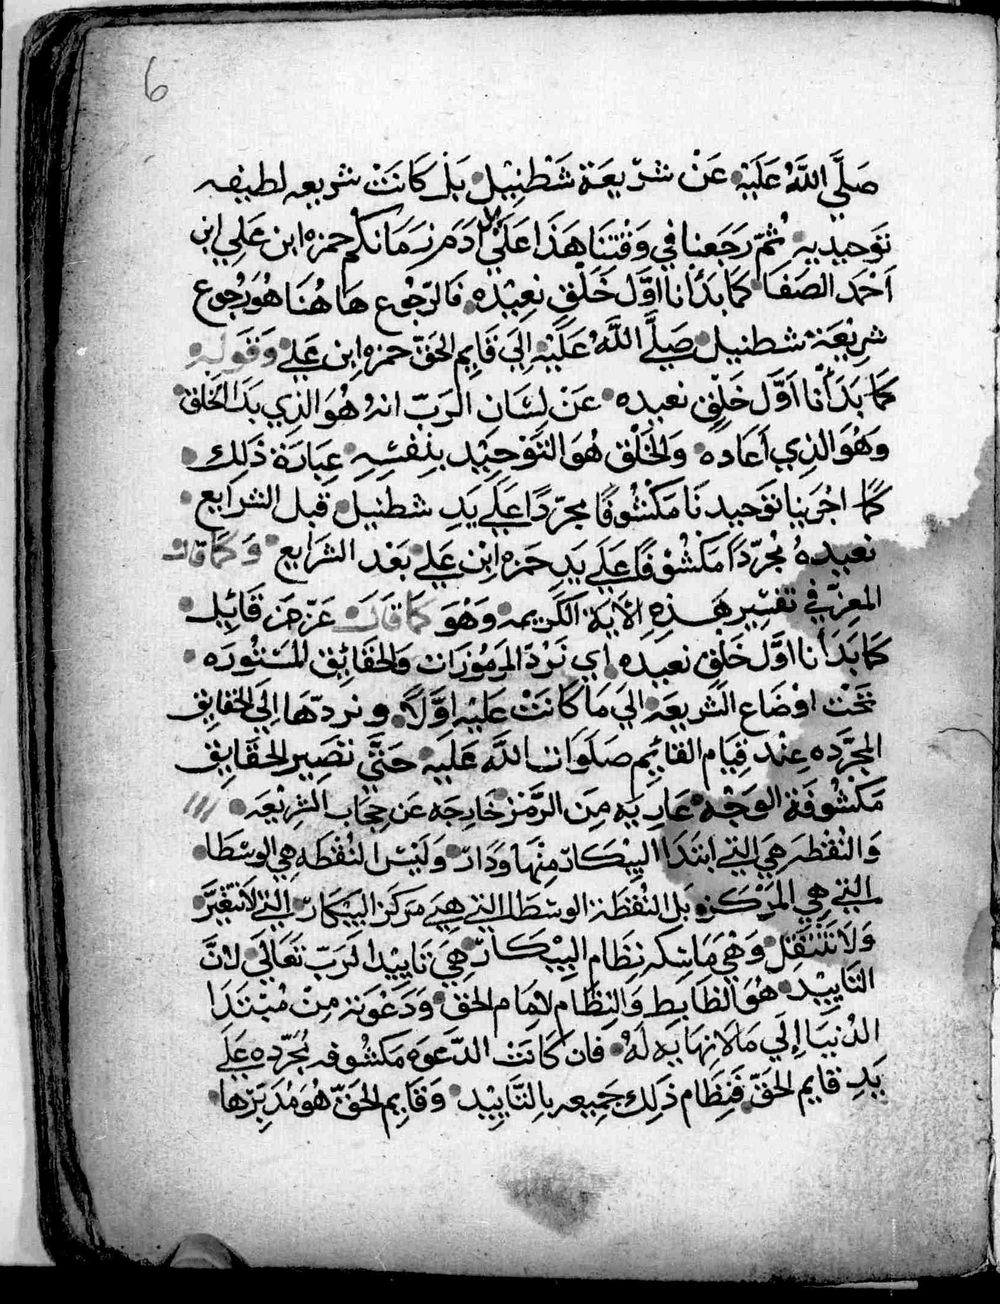 6
صَلَّي اللَّهُ عَلَيْهِ عَنْ شَرِيعَة شَطْنِيْل بَلْ كَانَتْ شريعه لطيفه
تَوحيديه ثُمّ رَجَعنا في وَقْتِنَا هَذَا عَلَي ادَم زَمَانكُم حمزه ابن عَلي ابن
اَحْمَد الصَفَا كمَا بَدَأنا اوَّل خَلْقٍ نعِيْدُه فَالرّجُوع هَا هُنَا هُوَ رجُوع
شرِيْعَة شطنيل صَلَّي اللَّهُ عَلَيْهِ اِلَي قَايِم الحَقّ حمزه ابن عَلي وَقَولِهِ
كمَا بَدَأنا اَوَّل خَلْقٍ نعيده عَنْ لِسَان الرَبّ انهُ هُوَ الذِي بَدَا الخَلق
وَهُوَ الذِي اَعَادهُ وَالخَلْق هُوَ التَوْحِيْد بِنفسِهِ عِبَارَة ذَلِك
كما اجْرَينا تَوحيدنَا مَكْشُوفًا مجَرّدًا عَلَي يَدِ شطنيل قبل الشرايع
نعيدهُ مُجرّدًا مَكشُوفًا عَلَي يَدِ حمزه ابْن عَلي بَعْد الشرَايع وَكَمَا قال
المعزّ في تفسِير هَذِهِ الآيَة الكَريمه وَهُوَ كَمَا قَالَ عَزّ مِن قَائِل
كمَا بَدَأنا اوَّل خَلْقٍ نعيده اي نَرُدّ المَرمُوزَات وَالحَقَائِق المَسْتُورَه
تَحْت اوْضَاع الشَرِيعَه الي مَا كَانَتْ عَلَيْهِ اوَّلاً ونردّهَا اِلَي الحقايِق
المجَرّده عِنْد قِيَام القايِم صَلَوَات اللَّهِ عَلَيه حَتَّي تصِير الحقَايِق
مَكْشُوفَة الوَجْه عَارِيَه مِنَ الرَّمز خَارِجَه عَن حِجَاب الشريْعَه
وَالنُقطَه هِيَ التي ابتَدَا البِيْكَار مِنْهَا وَدَارَ وَلَيْسَ النُقْطَه هِي الوسْطَا
التي هِي المَرْكز بَل النُقطَة الوسْطَا التي هِيَ مَركَز البِيْكار التي لَا تتَغيَّر
وَلَا تنْتَقِل وَهْيَ مَاسِكه نِظَام البِيْكَار هِيَ تَايِيد الرَبّ تَعَالَي لانَّ
التَايِيد هُوَ الظابِط وَالنِظَام لامَام الحَق وَدَعْوَته مِنْ مُبْتَدَا
الدُنيَا إلَي مَا لا نِهَايَه لَهُ فَان كَانَت الدَّعوَه مَكشُوفه مُجَرّده عَلَي
يَدِ قايِم الحَقّ فَنِظَام ذَلِك جَمِيعه بِالتَايِيْد وَقَايِم الحَقّ هُوَ مُدَبّرهَا